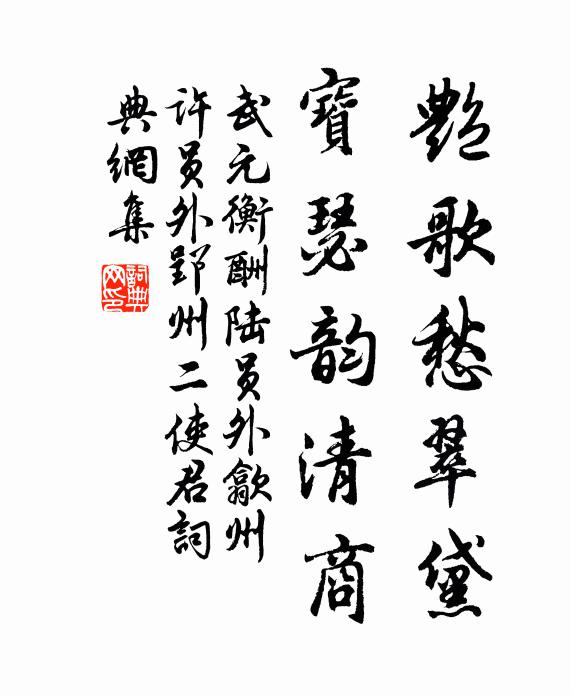 艷歌愁翠黛
寶瑟韵清商
武元衡酬陆員外歙州
许員外郢州二使君詞
典網集
詞典网印